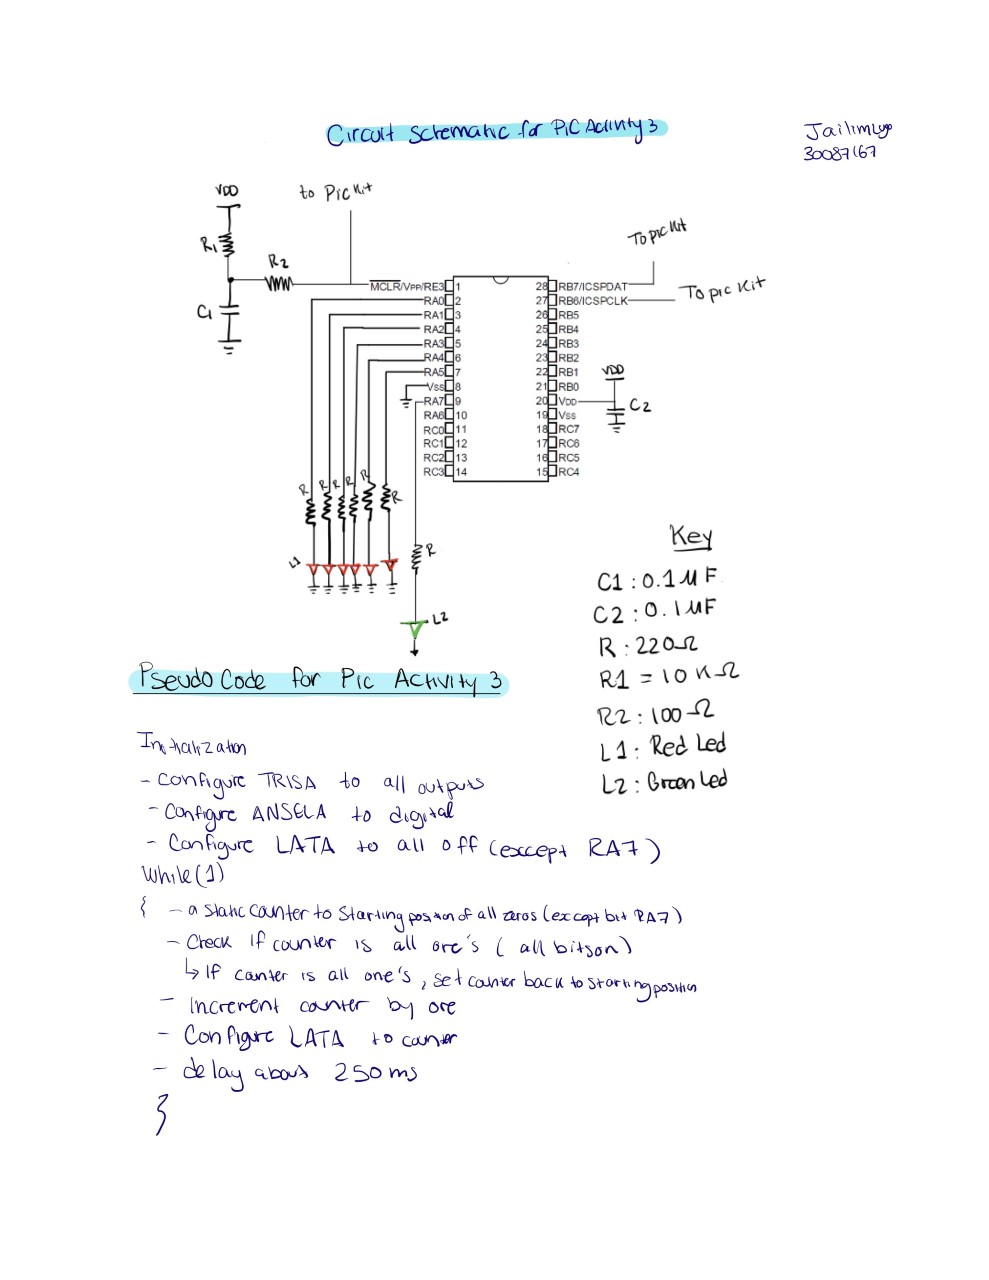 Circuit Schematic for PiC Activity 3
30087167
VDD
to Pic Kit
R1
R2
C1
To pic kit
To pic Kit
MCLR/VPP/RE3 1
RA0 2
RA1 3
RA2 4
RA3 5
RA4 6
RA5 7
Vss 8
RA7 9
RA6 10
RC0 11
RC1 12
RC2 13
RC3 14
28 RB7/ICSPDAT
27 RB6/ICSPCLK
26 RB5
25 RB4
24 RB3
23 RB2
22 RB1
21 RB0
20 VDD
19 Vss
18 RC7
17 RC6
16 RC5
15 RC4
VDD
C2
R R R R R R
L1
R
L2
Key
C1 : 0.1 µF
C2 : 0.1 µF
R : 220Ω
R1 = 10 KΩ
R2 : 100Ω
L1 : Red Led
L2 : Green Led
Pseudo Code for Pic Activity 3
Initialization
- Configure TRISA to all outputs
- Configure ANSELA to digital
- Configure LATA to all off (except RA7)
While(1)
{ - a static counter to starting position of all zeros (except bit RA7)
- Check if counter is all one's ( all bits on)
↳ If counter is all one's, set counter back to starting position
- Increment counter by one
- Configure LATA to counter
- delay about 250 ms
}